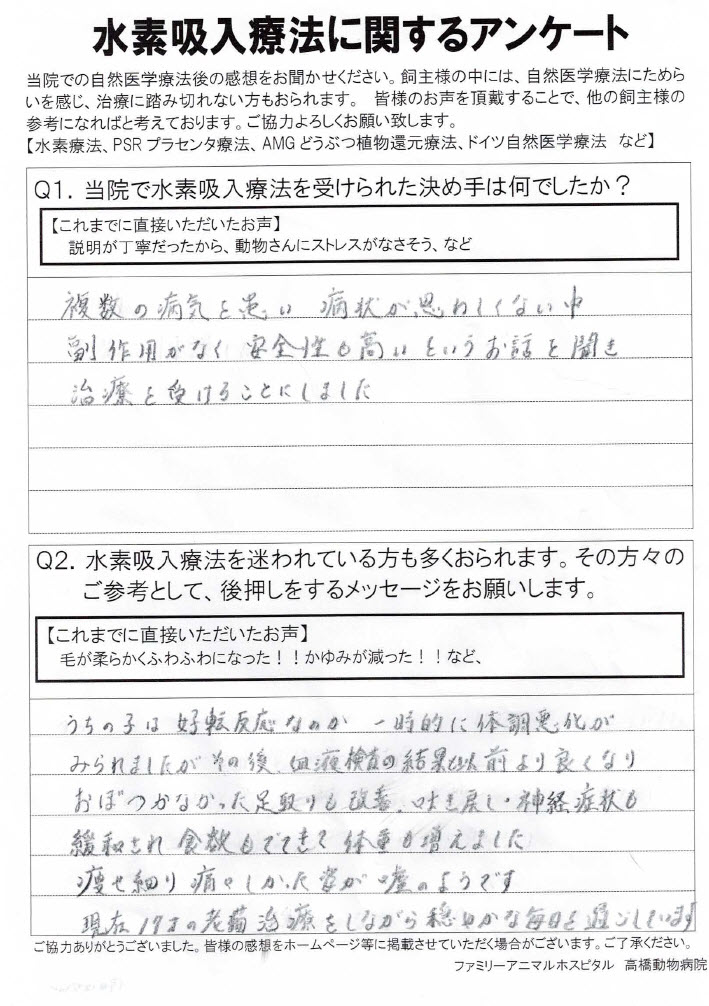 水素吸入療法に関するアンケート
当院での自然医学療法後の感想をお聞かせください。飼主様の中には、自然医学療法にためら
いを感じ、治療に踏み切れない方もおられます。 皆様のお声を頂戴することで、他の飼主様の
参考になればと考えております。ご協力よろしくお願い致します。
【水素療法、PSRプラセンタ療法、AMGどうぶつ植物還元療法、ドイツ自然医学療法 など】
Q1. 当院で水素吸入療法を受けられた決め手は何でしたか？
【これまでに直接いただいたお声】
説明が丁寧だったから、動物さんにストレスがなさそう、など
複数の病気を患い 病状が思わしくない中
副作用がなく 安全性も高いというお話を聞き
治療を受けることにしました
Q2. 水素吸入療法を迷われている方も多くおられます。その方々の
ご参考として、後押しをするメッセージをお願いします。
【これまでに直接いただいたお声】
毛が柔らかくふわふわになった！！かゆみが減った！！など、
うちの子は 好転反応なのか 一時的に体調悪化が
みられましたが その後、血液検査の結果も以前より良くなり
おぼつかなかった足取りも改善、吐き戻し・神経症状も
緩和され 食欲もでてきて 体重も増えました
痩せ細り 痛々しかった姿が 嘘のようです
現在17才の老猫 治療をしながら 穏やかな毎日を過ごしています
ご協力ありがとうございました。皆様の感想をホームページ等に掲載させていただく場合がございます。ご了承ください。
ファミリーアニマルホスピタル 高橋動物病院